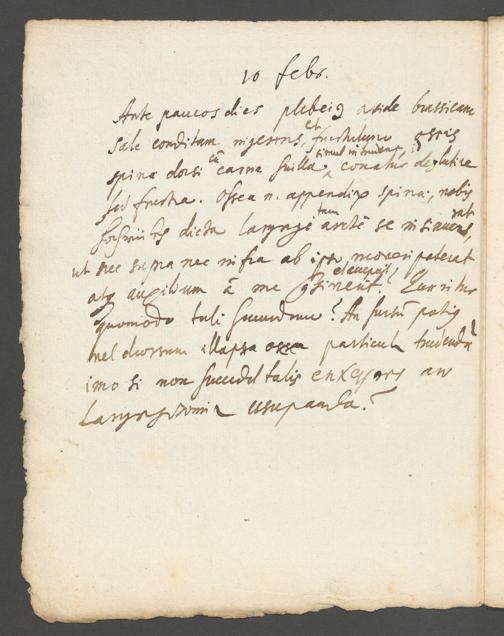 10 febr.
Ante paucos dies plebeiꝰ avide brassicam
sale conditam ingerens, et frustulum ossis
spina dorsi cū carne suilla simul intrudens, conatur deglutire
sed frustra. Ossea n. appendix spinæ, nobis
dicta laryngi tam arctè se insinuarat,
ut nec supra nec infra ab ipso moveri poterat
atq auxilium à me petierit? Quæritur
quomodo tali succurrendum? An sursū potiꝰ
vel deorsum illapsa ossea particula trudenda
imo si non succedit talis ἐγχείρησις an
Laryngotomia usurpanda?